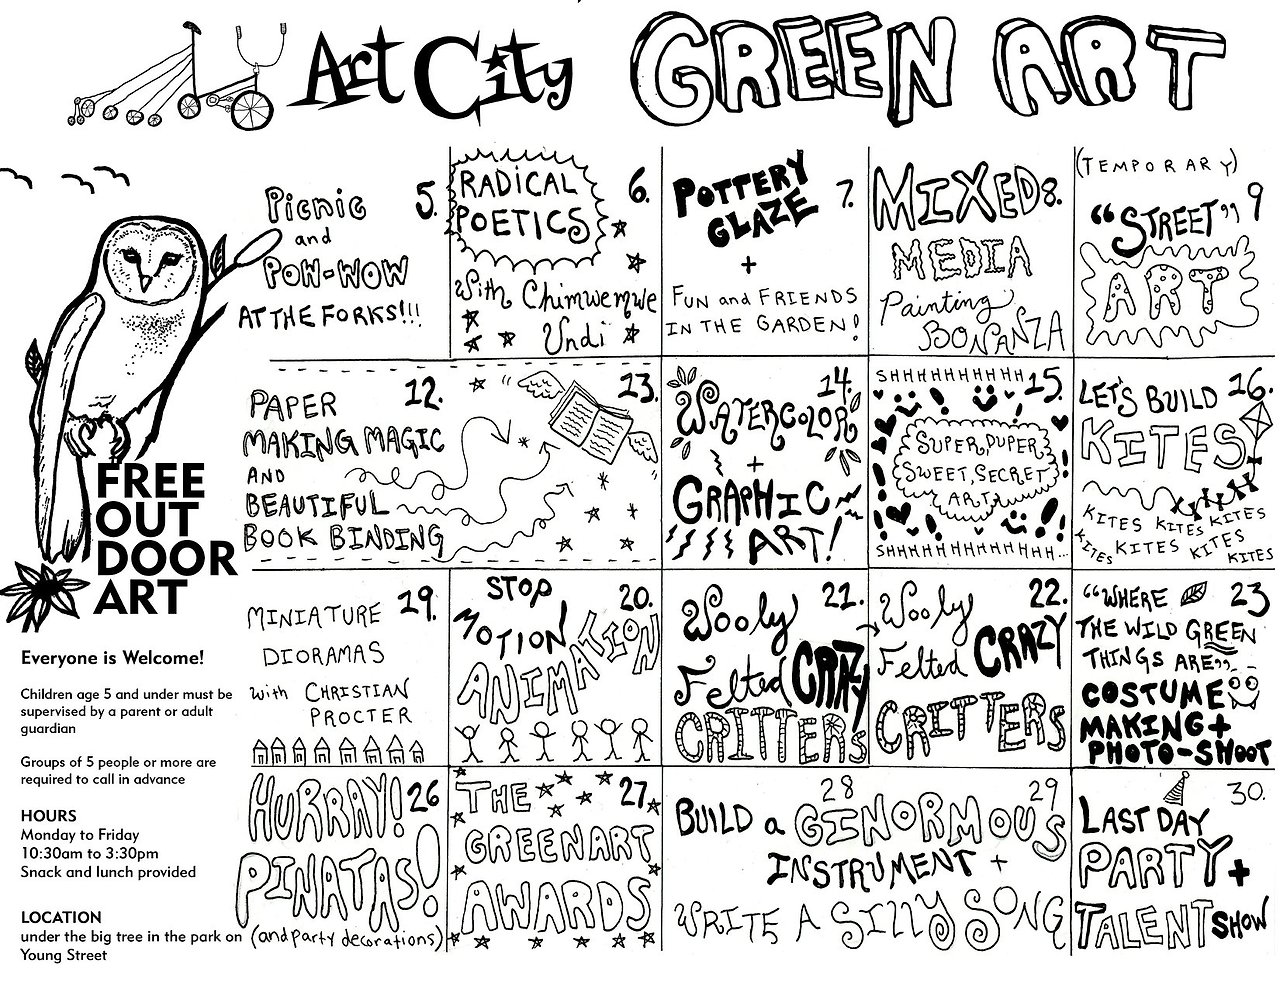 Art City GREEN ART
Picnic 5.
and
POW-WOW
AT THE FORKS!!!
RADICAL 6.
POETICS
With Chimwemwe
Undi
POTTERY 7.
GLAZE
+
FUN and FRIENDS
IN THE GARDEN!
MIXED 8.
MEDIA
Painting
BONANZA
(TEMPORARY)
"STREET" 9
ART
PAPER 12.
MAKING MAGIC
AND
BEAUTIFUL
BOOK BINDING
13.
14.
WATERCOLOR
+
GRAPHIC
ART!
SHHHHHHHHHHH 15.
SUPER, DUPER
SWEET, SECRET
ART
SHHHHHHHHHHHHHH...
LET'S BUILD 16.
KITES
KITES KITES KITES
KITES KITES KITES
KITES
MINIATURE 19.
DIORAMAS
with CHRISTIAN
PROCTER
STOP 20.
MOTION
ANIMATION
Wooly 21.
Felted CRAZY
CRITTERS
Wooly 22.
Felted CRAZY
CRITTERS
"WHERE 23
THE WILD GREEN
THINGS ARE"
COSTUME
MAKING +
PHOTO-SHOOT
HURRAY! 26
PINATAS!
(and party decorations)
THE 27.
GREENART
AWARDS
28 29
BUILD a GINORMOUS
INSTRUMENT +
WRITE A SILLY SONG
30.
LAST DAY
PARTY +
TALENT SHOW
FREE
OUT
DOOR
ART
Everyone is Welcome!
Children age 5 and under must be
supervised by a parent or adult
guardian
Groups of 5 people or more are
required to call in advance
HOURS
Monday to Friday
10:30am to 3:30pm
Snack and lunch provided
LOCATION
under the big tree in the park on
Young Street